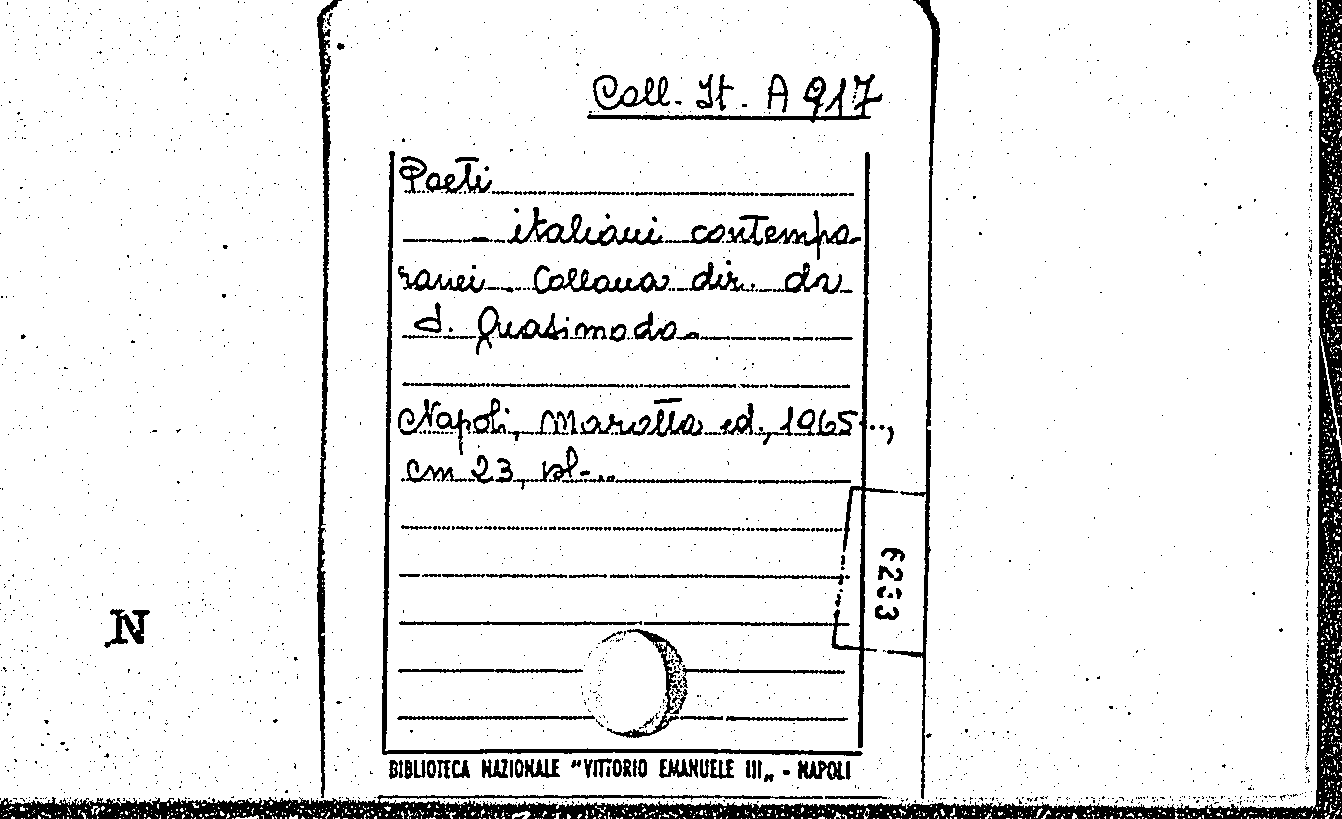 Coll. It. A 917
Poeti
- italiani contempo
ranei - Collana dir. da
S. Quasimodo.
Napoli, Marotta ed., 1965-..,
cm 23, vl-..
6233
N
BIBLIOTECA NAZIONALE "VITTORIO EMANUELE III„ - NAPOLI